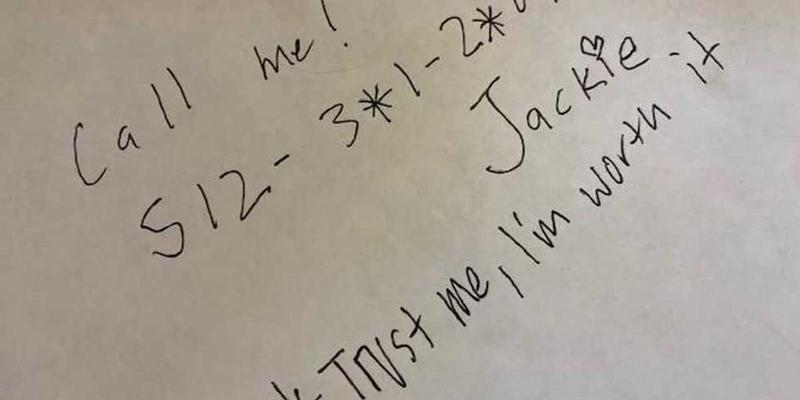 Call me!
512-3*1-2*
Jackie
* Trust me, I'm worth it